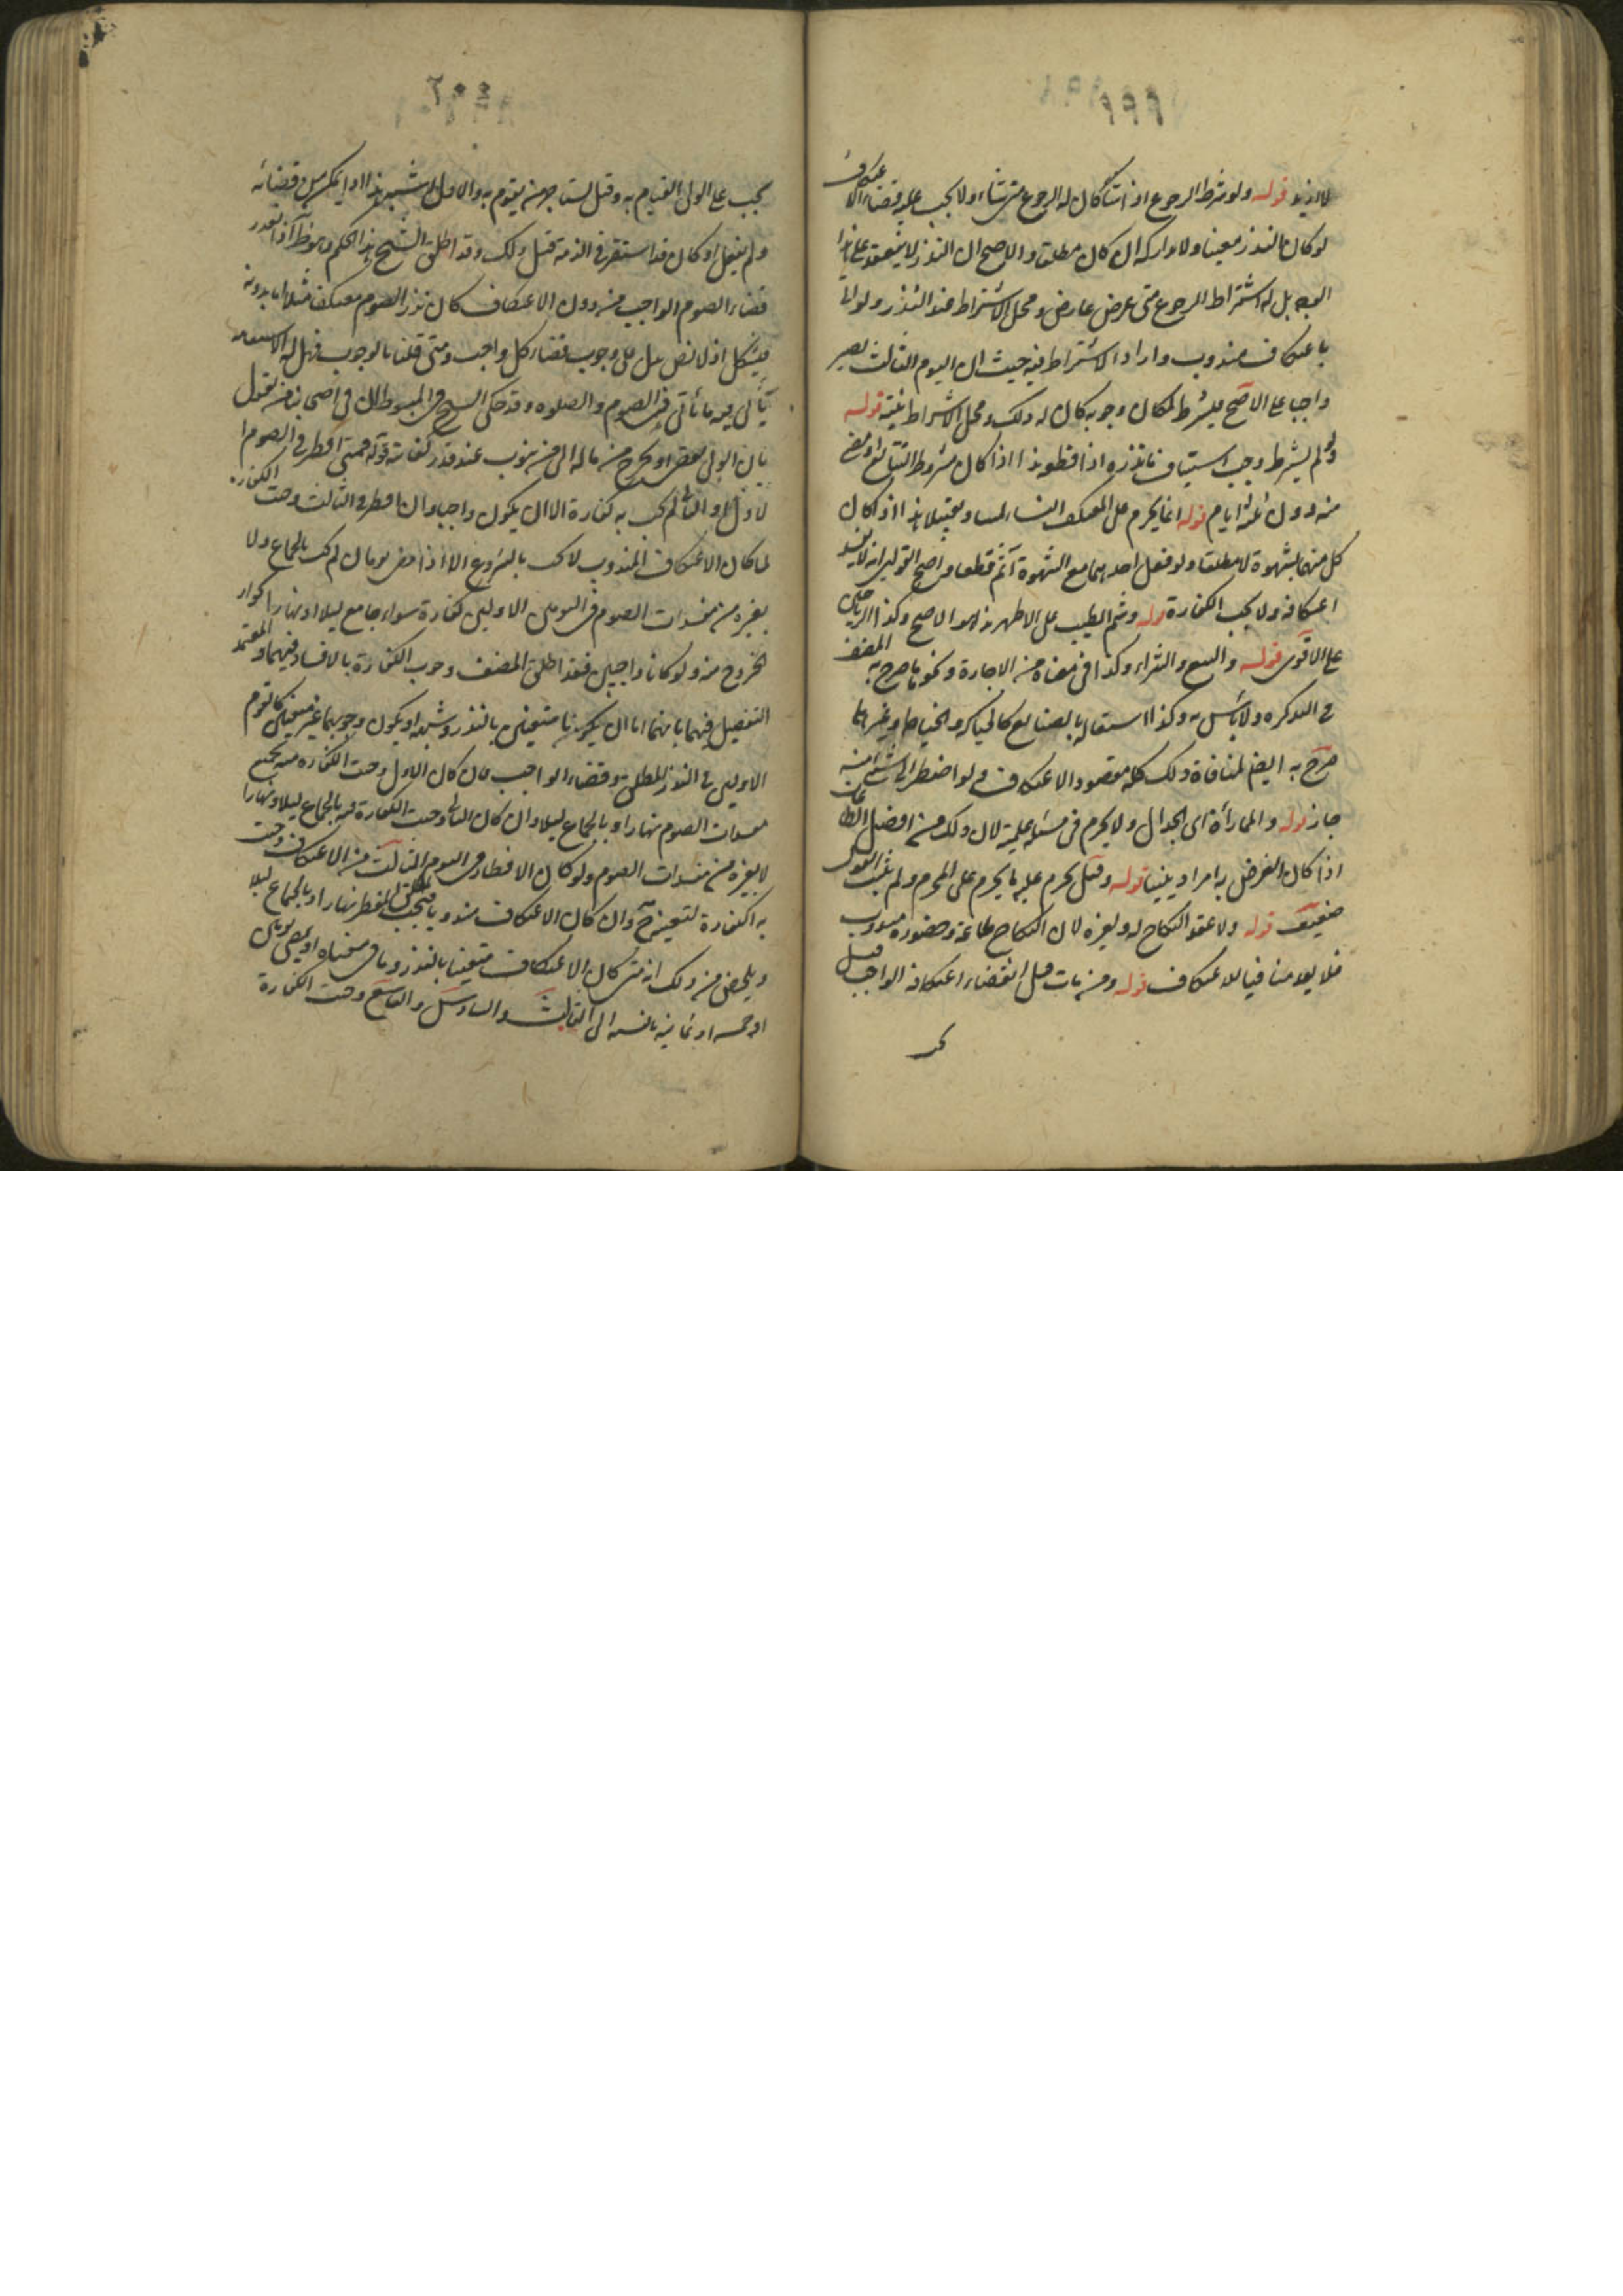 لا ازيد قوله ولو شرط الرجوع اذا شاء كان له الرجوع متى شاء ولا يجب عليه قضاء الاعتكاف
لو كان النذر معينا ولا تداركه ان كان مطلقا والاصح ان النذر لا ينعقد على هذا
الوجه بل له اشتراط الرجوع متى عرض عارض ومحل الاشتراط عند النذر ولو اتى
باعتكاف مندوب واراد الاشتراط فيه حيث ان اليوم الثالث يصير
واجبا على الاصح فليشرط لمكان وجوبه كان له ذلك ومحل الاشتراط نيته قوله
ولو لم يشترط وجب استيناف ما نذره اذا قطعه هذا اذا كان مشروط التتابع او مضى
منه دون ثلثة ايام قوله انما يحرم على المعتكف النساء لمسا وتقبيلا هذا اذا كان
كل منهما بشهوة لا مطلقا ولو فعل احدهما مع الشهوة اثم قطعا واصح القولين انه لا يفسد
اعتكافه ولا تجب الكفارة قوله وشم الطيب على الاظهر هذا هو الاصح وكذا الرياحين
على الاقوى قوله والبيع والشراء وكذا في معناه من الاجارة ونحوها صرح به المصنف
في التذكرة ولا باس به وكذا اشتغاله بالصنايع كالحياكة والخياطة وغيرهما
صرح به ايضا لمنافاة ذلك كله مقصود الاعتكاف ولو اضطر الى شئ منه
جاز قوله والمماراة اى الجدال ولا يحرم في مسئلة علمية لان ذلك من افضل الطاعات
اذا كان الغرض به امرا دينيا قوله وقيل يحرم عليه ما يحرم على المحرم ولم يثبت القول
ضعيف قوله ولا عقد النكاح له ولغيره لان النكاح طاعة وحضوره مندوب
فلا يعد منافيا للاعتكاف قوله ومن مات قبل انقضاء اعتكافه الواجب قيل
٢٠٠
يجب على الولى القيام به وقيل يستاجر من يقوم به والاول اشبه هذا اذا تمكن من قضائه
ولم يفعل او كان قد استقر في الذمة قبل ذلك وقد اطلق الشيخ هذا الحكم
قضاء الصوم الواجب من دون الاعتكاف كان نذر الصوم معتكفا مثلا اما بدونه
فيشكل اذ لا نص يدل على وجوب قضاء كل واجب ومتى قلنا بالوجوب فهل له الاستنابة
ياتى فيه ما ياتى في الصوم والصلوة وقد حكى الشيخ في المبسوط ان في اصحابنا من يقول
بان الولى يقضى او يخرج من ماله الى من ينوب عنه قدر كفايته قوله فمتى افطر في الصوم
الاول او الثانى لم تجب به كفارة الا ان يكون واجبا وان افطر في الثالث وجبت الكفارة
لما كان الاعتكاف المندوب لا يجب بالشروع الا اذا مضى يومان لم تجب بالجماع ولا
بغيره من مفسدات الصوم في اليومين الاولين كفارة سواء جامع ليلا او نهارا لجواز
الخروج منه ولو كانا واجبين فقد اطلق المصنف وجوب الكفارة بالافساد فيهما والمعتمد
التفصيل فيهما بانهما اما ان يكونا متعينين بالنذر وشبهه او يكون وجوبهما غير متعين كاليوم
الاولين في النذر المطلق وقضاء الواجب فان كان الاول وجبت الكفارة فيه بجميع
مفسدات الصوم نهارا وبالجماع ليلا وان كان الثانى وجبت الكفارة فيه بالجماع ليلا ونهارا
لا بغيره من مفسدات الصوم ولو كان الافطار في اليوم الثالث من الاعتكاف وجبت
به الكفارة لتعينه ح وان كان الاعتكاف مندوبا فتجب بالمفطر نهارا وبالجماع ليلا
ويلخص من ذلك انه متى كان الاعتكاف متعينا بالنذر وما في معناه او بمضى يومين
او خمسة او ثمانية بالنسبة الى الثالث والسادس والتاسع وجبت الكفارة